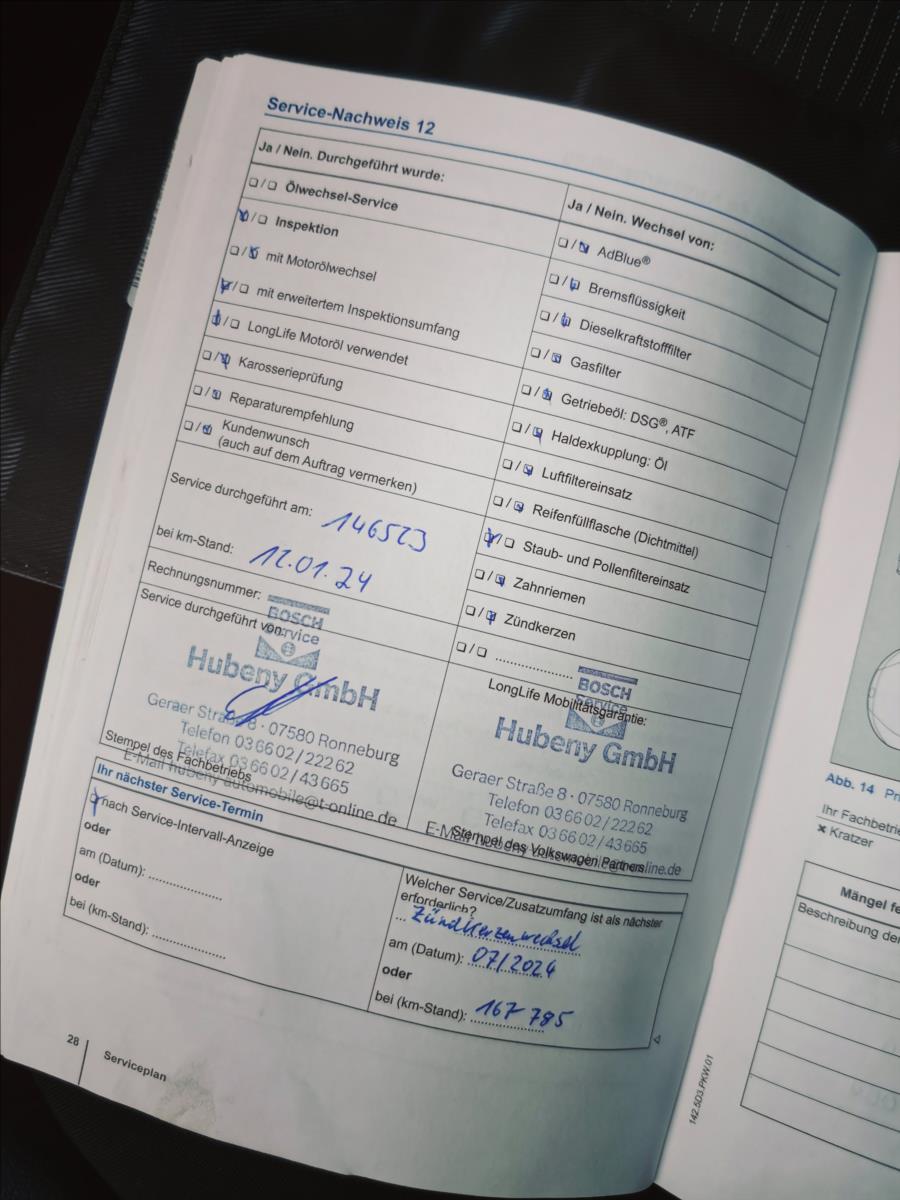 Service-Nachweis 12
Ja / Nein. Durchgeführt wurde:
❑/❑ Ölwechsel-Service
❑/❑ Inspektion
❑/❑ mit Motorölwechsel
❑/❑ mit erweitertem Inspektionsumfang
❑/❑ LongLife Motoröl verwendet
❑/❑ Karosserieprüfung
❑/❑ Reparaturempfehlung
❑/❑ Kundenwunsch
(auch auf dem Auftrag vermerken)
Service durchgeführt am: 146523
bei km-Stand: 12.01.24
Rechnungsnummer:
Service durchgeführt von:
BOSCH
Service
Hubeny GmbH
Geraer Straße 8 · 07580 Ronneburg
Telefon 03 66 02 / 222 62
Telefax 03 66 02 / 43 665
E-Mail hubeny automobile@t-online.de
Stempel des Fachbetriebs
Ja / Nein. Wechsel von:
❑/❑ AdBlue®
❑/❑ Bremsflüssigkeit
❑/❑ Dieselkraftstofffilter
❑/❑ Gasfilter
❑/❑ Getriebeöl: DSG®, ATF
❑/❑ Haldexkupplung: Öl
❑/❑ Luftfiltereinsatz
❑/❑ Reifenfüllflasche (Dichtmittel)
❑/❑ Staub- und Pollenfiltereinsatz
❑/❑ Zahnriemen
❑/❑ Zündkerzen
❑/❑ ....................
LongLife Mobilitätsgarantie:
BOSCH
Service
Hubeny GmbH
Geraer Straße 8 · 07580 Ronneburg
Telefon 03 66 02 / 222 62
Telefax 03 66 02 / 43 665
Stempel des Volkswagen Partners
Ihr nächster Service-Termin
nach Service-Intervall-Anzeige
oder
am (Datum): ....................
oder
bei (km-Stand): ....................
Welcher Service/Zusatzumfang ist als nächster
erforderlich?
... Zündkerzenwechsel
am (Datum): 07/2024
oder
bei (km-Stand): 167 785
28
Serviceplan
142.5D3.PKW.01
Abb. 14
Ihr
× Kratzer
Mängel
Beschreibung